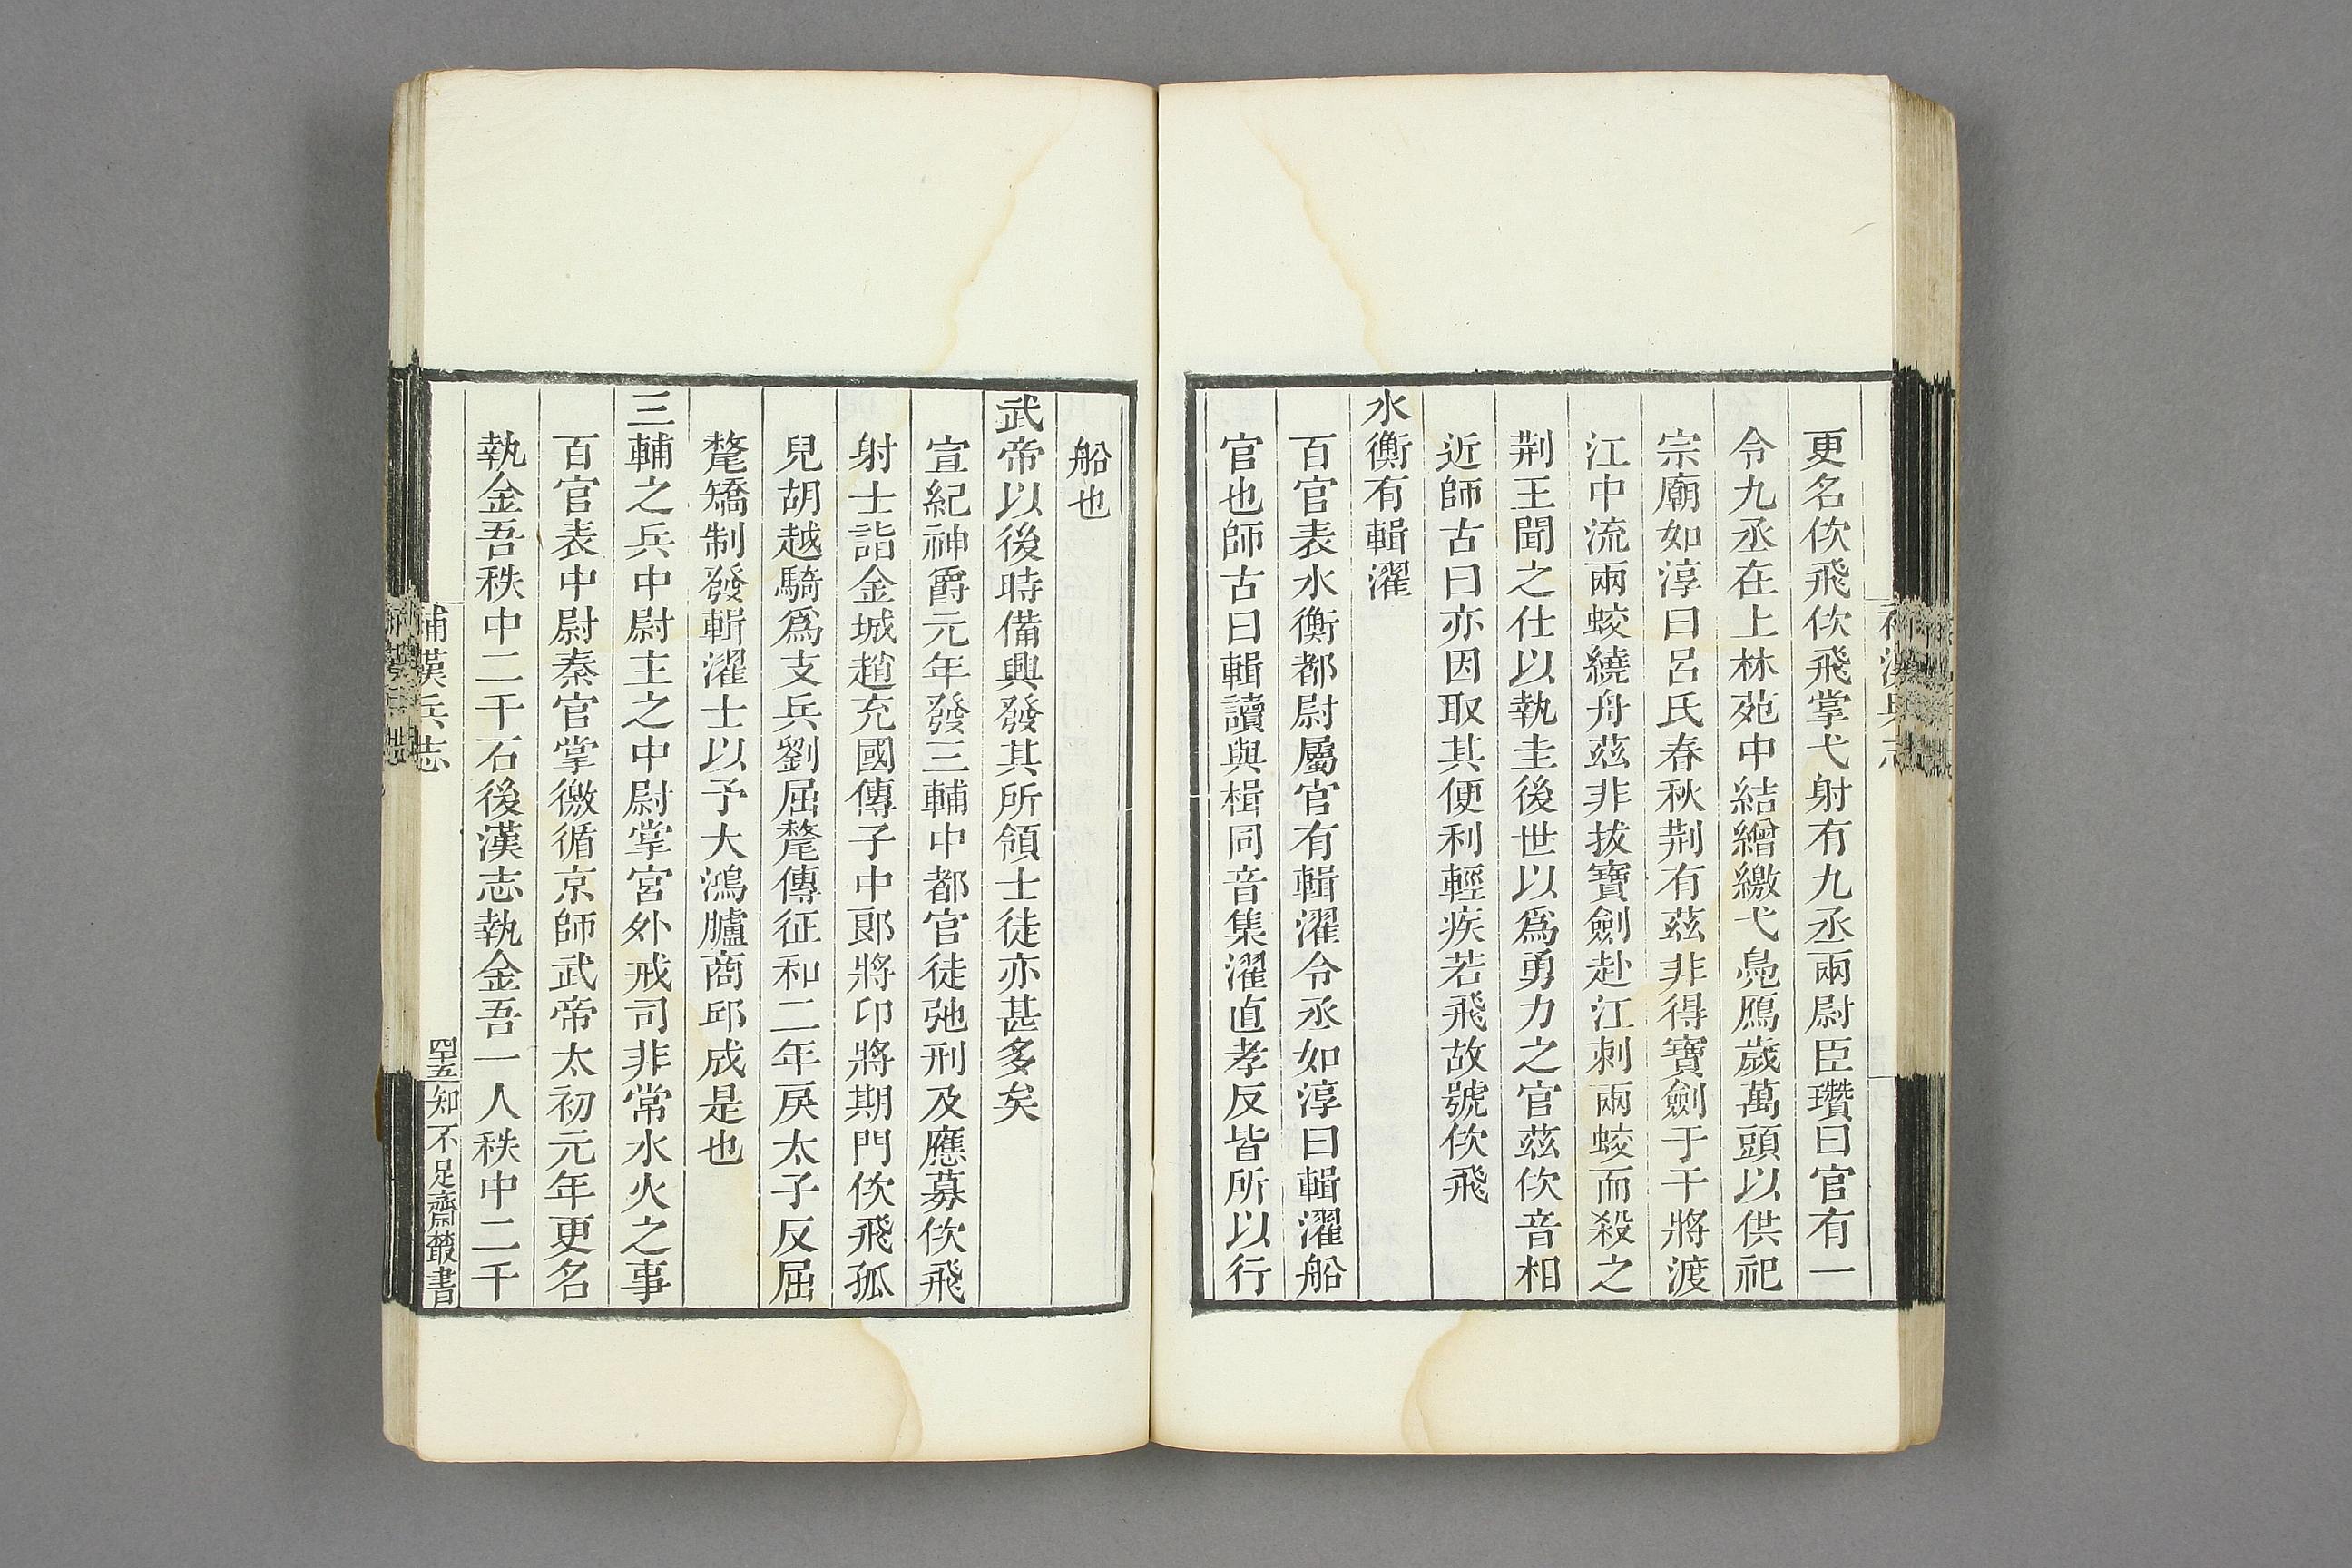 更名佽飛佽飛掌弋射有九丞兩尉臣瓚曰官有一
令九丞在上林苑中結繒繳弋鳧鴈歲萬頭以供祀
宗廟如淳曰呂氏春秋荆有茲非得寶劍于干將渡
江中流兩蛟繞舟茲非拔寶劍赴江刺兩蛟而殺之
荆王聞之仕以執圭後世以爲勇力之官茲佽音相
近師古曰亦因取其便利輕疾若飛故號佽飛
水衡有輯濯
百官表水衡都尉屬官有輯濯令丞如淳曰輯濯船
官也師古曰輯讀與楫同音集濯直孝反皆所以行
船也
武帝以後時備興發其所領士徒亦甚多矣
宣紀神爵元年發三輔中都官徒弛刑及應募佽飛
射士詣金城趙充國傳子中郎將卬將期門佽飛孤
兒胡越騎爲支兵劉屈氂傳征和二年戾太子反屈
氂矯制發輯濯士以予大鴻臚商邱成是也
三輔之兵中尉主之中尉掌宮外戒司非常水火之事
百官表中尉秦官掌徼循京師武帝太初元年更名
執金吾秩中二千石後漢志執金吾一人秩中二千
補漢兵志
四十五
知不足齋叢書